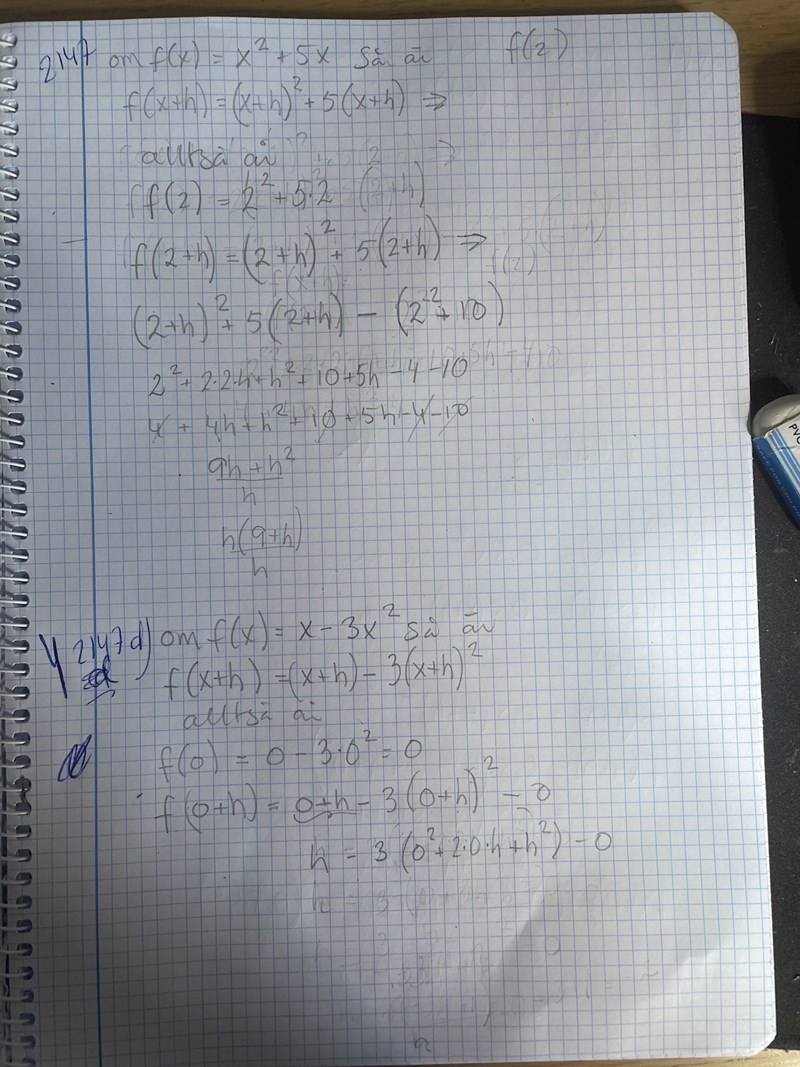 2147 om f(x) = x² + 5x så är f(2)
f(x+h) = (x+h)² + 5(x+h) ⇒
alltså är
f(2) = 2² + 5·2
f(2+h) = (2+h)² + 5(2+h) ⇒
(2+h)² + 5(2+h) − (2² + 10)
2² + 2·2·h + h² + 10 + 5h − 4 − 10
4 + 4h + h² + 10 + 5h − 4 − 10
9h + h²
h
h(9+h)
h
2147 d) om f(x) = x − 3x² så är
f(x+h) = (x+h) − 3(x+h)²
alltså är
f(0) = 0 − 3·0² = 0
f(0+h) = 0+h − 3(0+h)² − 0
h − 3(0² + 2·0·h + h²) − 0
h
PVC